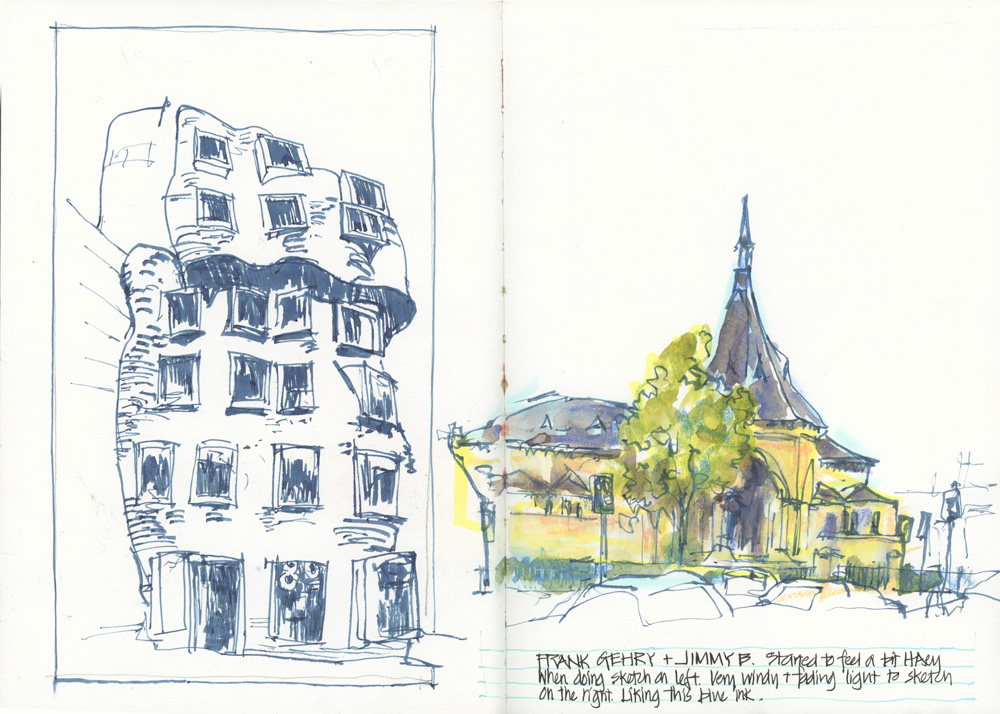 FRANK GEHRY + JIMMY B. Started to feel a bit HAEY
when doing sketch on left. Very windy + fading light to sketch
on the right. Liking this blue ink.